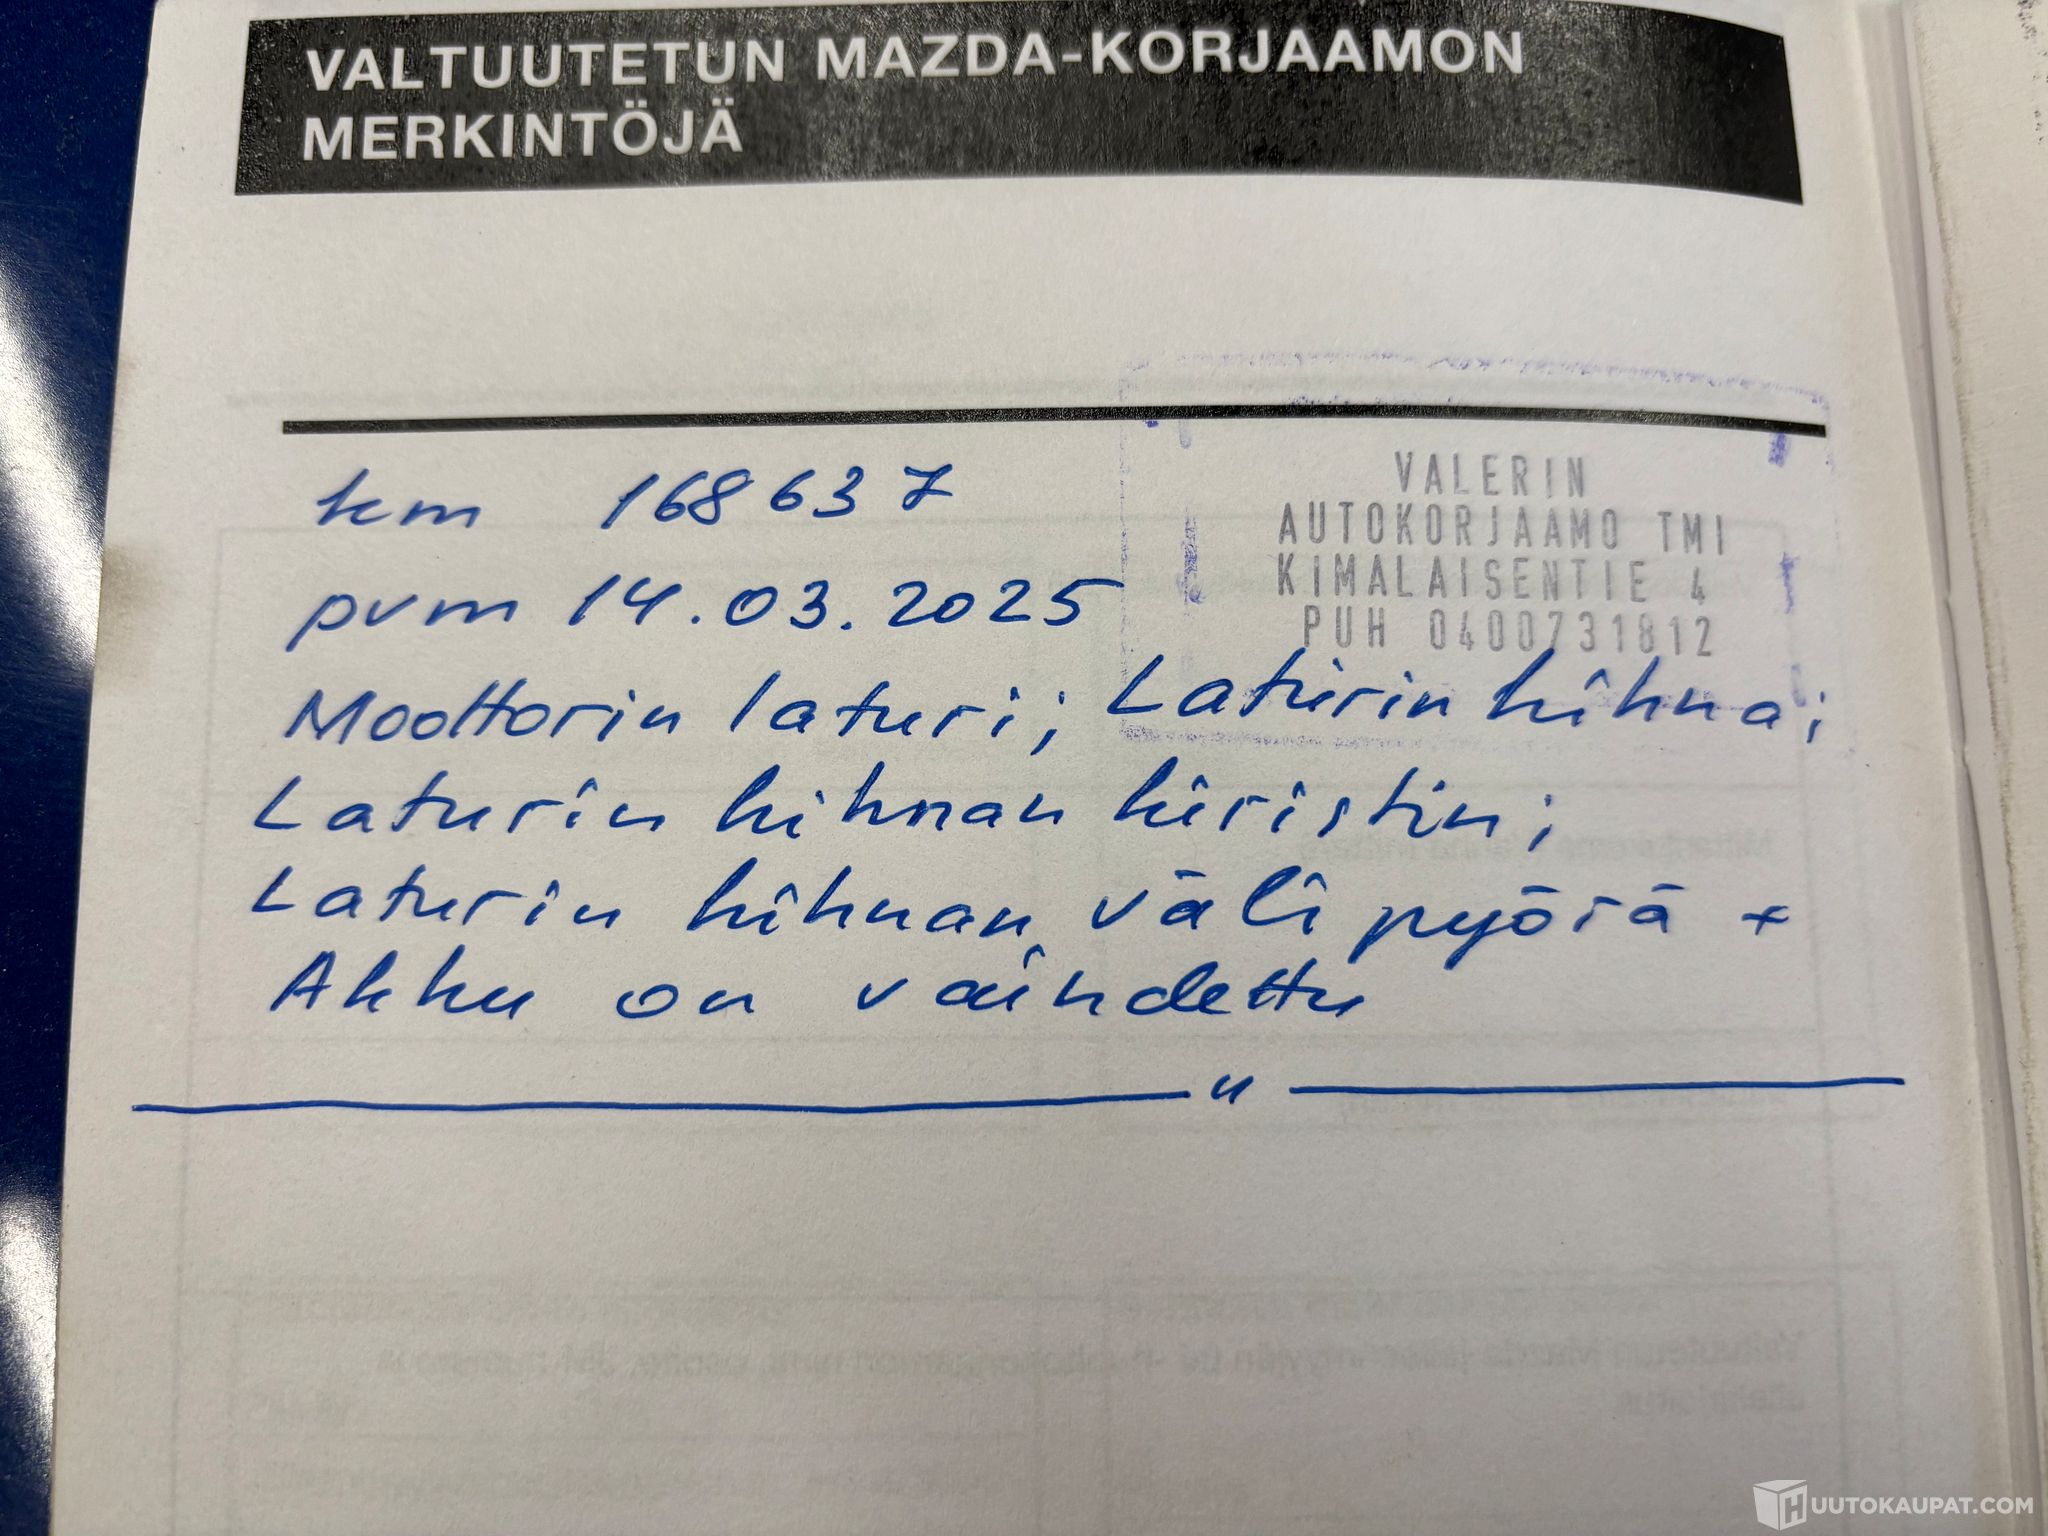 VALTUUTETUN MAZDA-KORJAAMON
MERKINTÖJÄ
VALERIN
AUTOKORJAAMO TMI
KIMALAISENTIE 4
PUH 0400731812
km 168637
pvm 14.03.2025
Moottorin laturi; Laturin hihna;
Laturin hihnan kiristin;
Laturin hihnan väli pyörä +
Akku on vaihdettu
— " —
HUUTOKAUPAT.COM